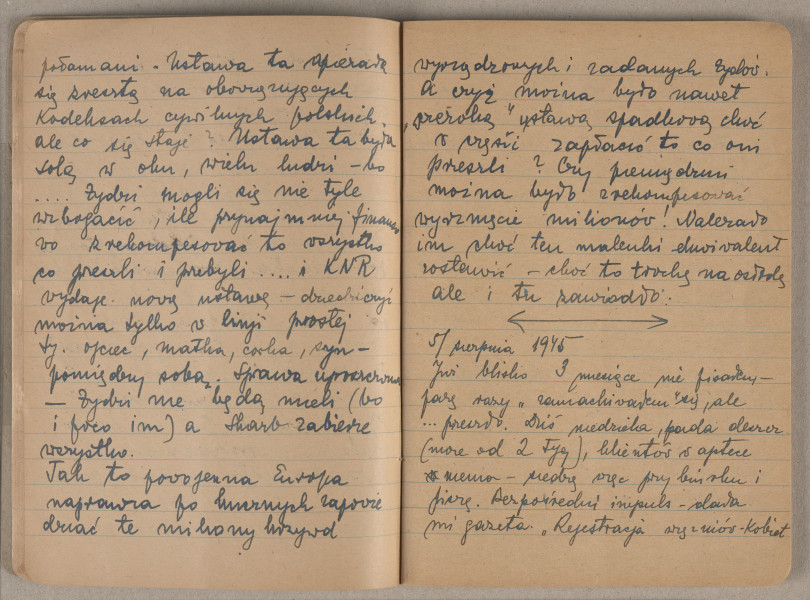 połamani. Ustawa ta opierała
się zresztą na obowiązujących
Kodeksach cywilnych polskich.
ale co się staje? Ustawa ta była
solą w oku, wielu ludzi – bo
.... Żydzi mogli się nie tyle
wzbogacić, ile przynajmniej finanso
wo zrekompesować to wszystko
co przeszli i przebyli .... i KNR
wydaje nową ustawę – dziedziczyć
można tylko w linji prostej
tj. ojciec, matka, córka, syn –
pomiędzy sobą. Sprawa uproszczona
– Żydzi nie będą mieli (bo
i poco im) a Skarb zabierze
wszystko.
Tak to powojenna Europa
naprawia po szumnych zapowie
dziać te miliony krzywd
wyrządzonych i zadanych Żydów.
A czyż można było nawet
„szeroką" ustawą spadkową choć
w części zapłacić to co oni
przeszli? Czy pieniędzmi
można było zrekompesować
wyrznięcie milionów! Należało
im choć ten maleńki ekwiwalent
zostawić – choć to trochę na osłodę
ale i tu zawiodło.
5/ sierpnia 1945
Już blisko 3 miesiące nie pisałem –
parę razy „zamachiwałem" się, ale
... przeszło. Dziś niedziela, pada deszcz
(more od 2 tyg), klientów w aptece
niema – siedzę więc przy biurku i
piszę. Bezpośredni impuls – dała
mi gazeta. „Rejestracja więźniów-Kobiet